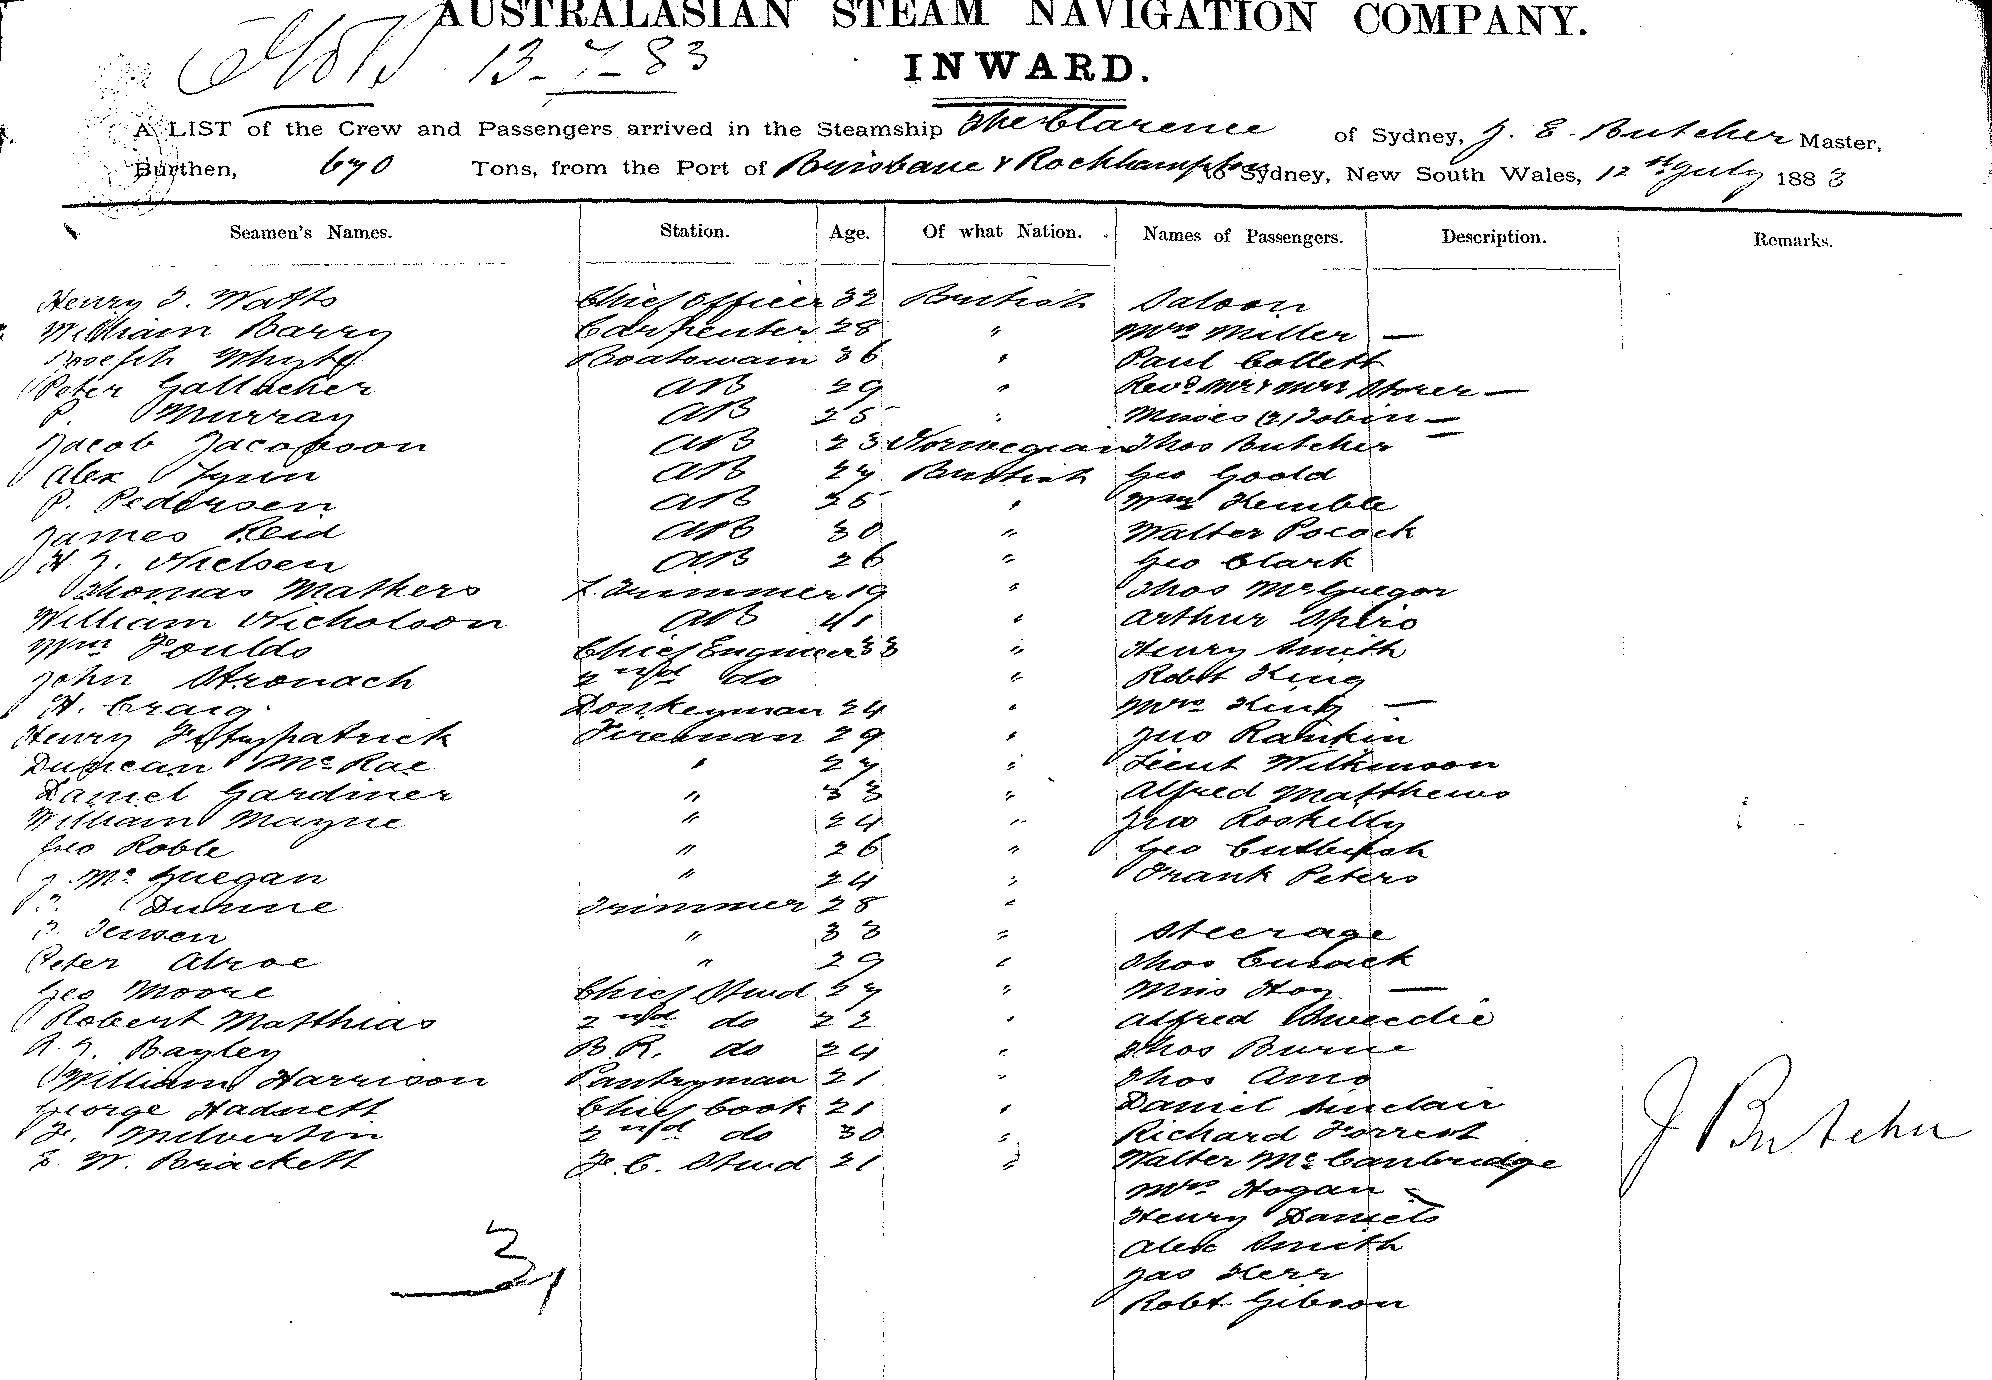 AUSTRALASIAN STEAM NAVIGATION COMPANY.
13-7-83
INWARD.
A LIST of the Crew and Passengers arrived in the Steamship The Clarence of Sydney, J. E. Butcher Master,
Burthen, 670 Tons, from the Port of Brisbane & Rockhampton to Sydney, New South Wales, 12th July 1883
Seamen's Names. Station. Age. Of what Nation. Names of Passengers. Description. Remarks.
Henry J. Watts Chief Officer 32 British Saloon
William Barry Carpenter 28 " Mrs Miller —
Joseph Whyte Boatswain 36 " Paul Collett
Peter Gallacher AB 29 " Revd Mr & Mrs Storer —
P. Murray AB 25 " Misses (2) Tobin —
Jacob Jacobson AB 23 Norwegian Thos Butcher
Alex Lynn AB 27 British Geo Goold
P. Pedersen AB 25 " Wm Kemble
James Reid AB 30 " Walter Pocock
H. J. Nielsen AB 26 " Geo Clark
Thomas Mathers L. Trimmer 19 " Thos McGregor
William Nicholson AB 41 " Arthur Spiro
Wm Foulds Chief Engineer 33 " Henry Smith
John Stronach 2nd do " Robt King
H. Craig Donkeyman 24 " Mrs King —
Henry Fitzpatrick Fireman 29 " Jno Rankin
Duncan McRae " 27 " Lieut Wilkinson
Daniel Gardiner " 33 " Alfred Matthews
William Mayne " 24 " Jno Roskelly
Geo Roble " 26 " Geo Cutbush
J. McGuegan " 24 " Frank Peters
Dunne Trimmer 28 "
Jensen " 33 " Steerage
Peter Abroe " 29 " Thos Cusack
Geo Moore Chief Stwd 27 " Miss Hoy —
Robert Matthias 2nd do 22 " Alfred
Bayley B.R. do 24 " Thos Burne
William Harrison Pantryman 21 " Thos Amo
George Hadnett Chief Cook 21 " Daniel Sinclair
Milvertin 2nd do 30 " Richard Forrest
E. W. Brackett F.C. Stwd 21 " Walter McCanbridge
J Butcher
Mrs Hogan —
Henry Daniels
Alex Smith
Jas Kerr
Robt Gibson